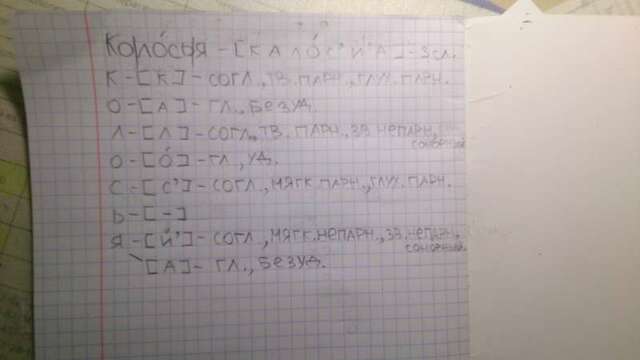 Коло́сья – [К А Л О́ С' Й' А] – 3 сл.
К – [К] – согл., тв. парн., глух. парн.
О – [А] – гл., безуд.
Л – [Л] – согл., тв. парн., зв. непарн., сонорный
О – [О́] – гл., уд.
С – [С'] – согл., мягк. парн., глух. парн.
Ь – [–]
Я – [Й'] – согл., мягк. непарн., зв. непарн., сонорный
[А] – гл., безуд.